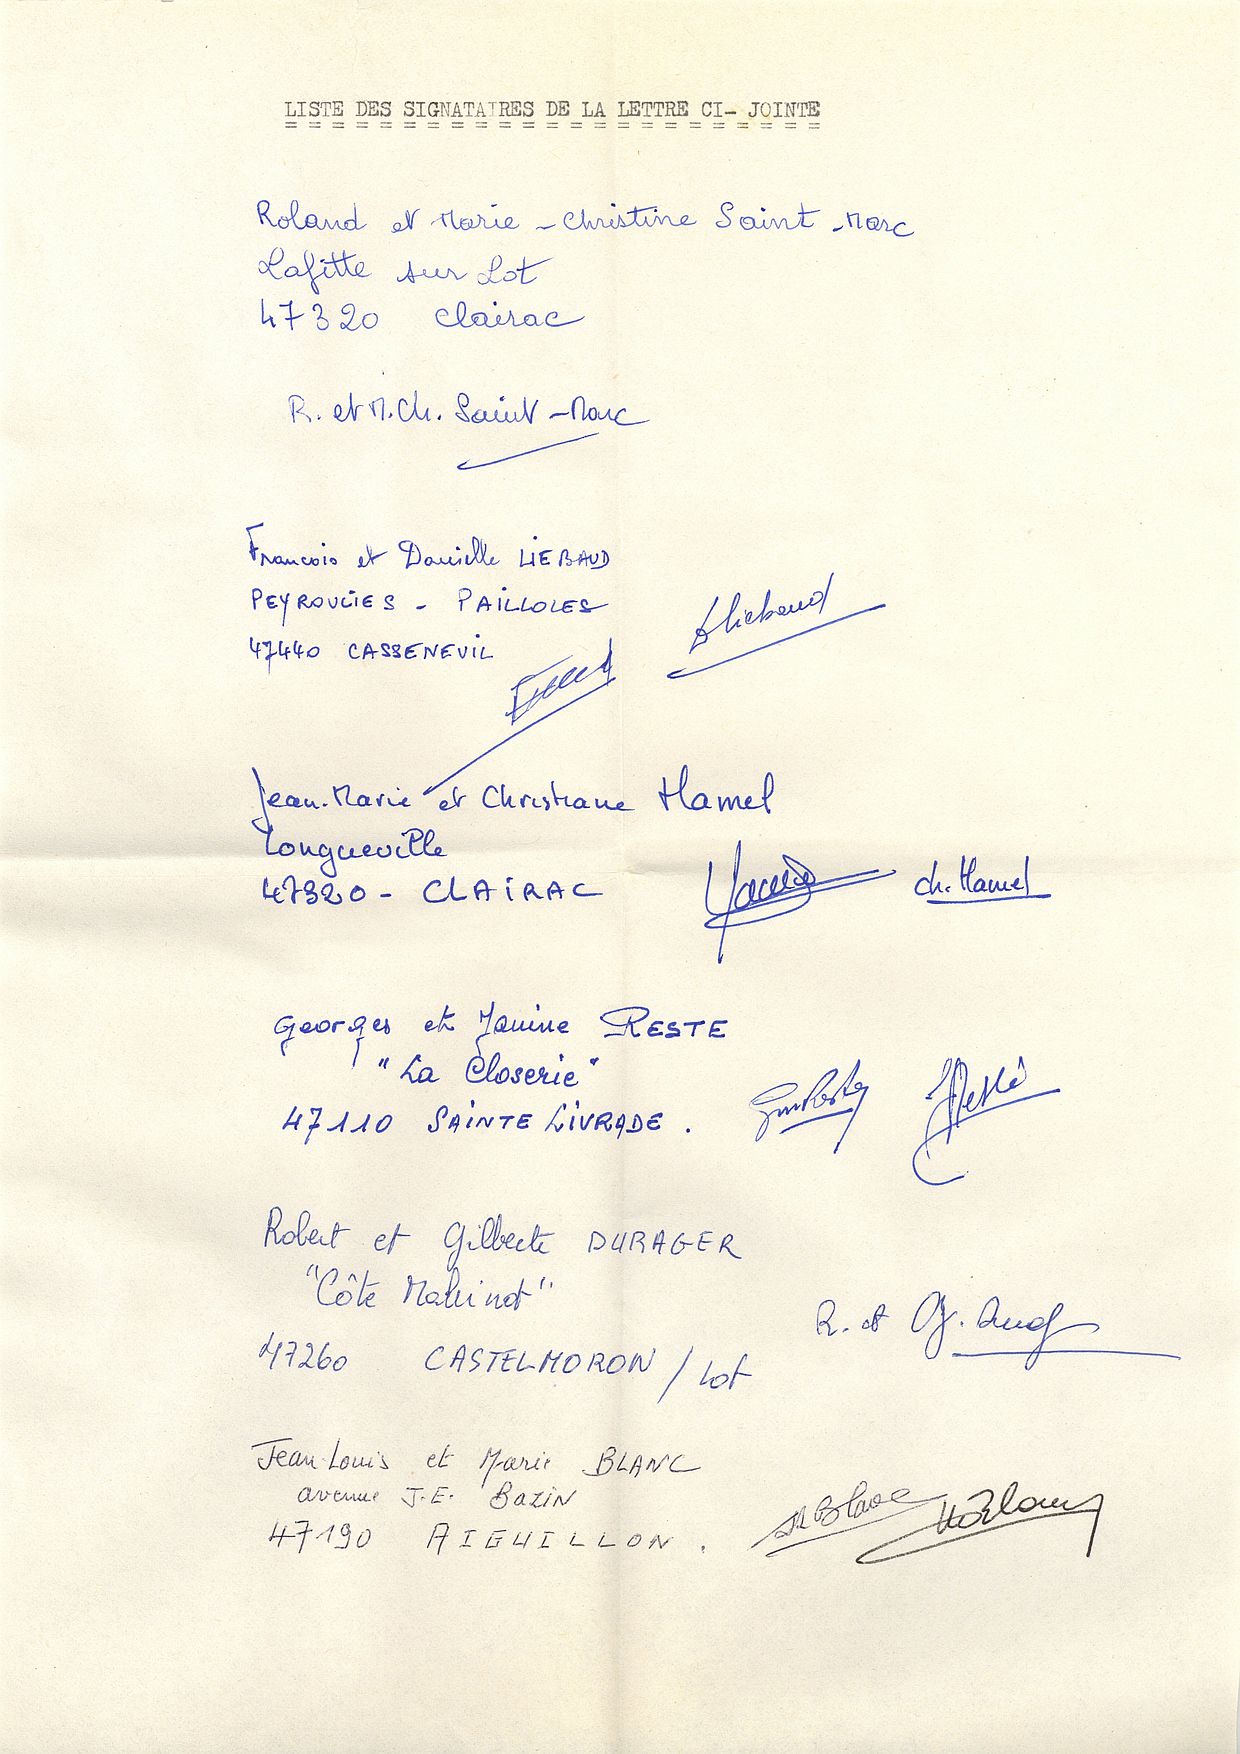 LISTE DES SIGNATAIRES DE LA LETTRE CI- JOINTE
Roland et Marie-Christine Saint-Marc
Lafitte sur Lot
47320 Clairac
R. et M.Ch. Saint-Marc
Francois et Danielle LIEBAUD
PEYROULIES - PAILLOLES
47440 CASSENEUIL
DLiebaud
Jean-Marie et Christiane Hamel
Longueville
47320 - CLAIRAC
Ch. Hamel
Georges et Janine RESTE
"La Closerie"
47110 SAINTE LIVRADE.
JReste
Robert et Gilberte DURAGER
"Côte
47260 CASTELMORON / Lot
R. et G.
Jean-Louis et Marie BLANC
avenue J.E. BAZIN
47190 AIGUILLON.